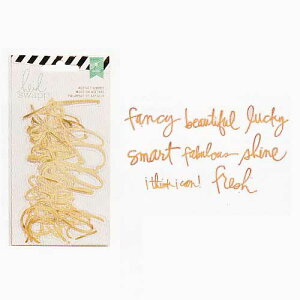 heidi
swapp
fancy beautiful lucky
smart fabulous shine
i think i can! fresh